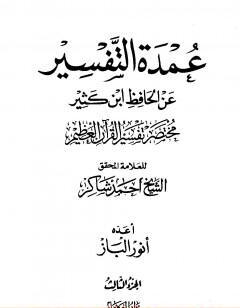 عُمْدَة التَّفْسِير
عَن الحَافِظ ابْن كَثِير
مُخْتَصَر تَفْسِير القُرْآن العَظِيم
للعلامة المحقق
الشَّيخ أحمَد شَاكِر
أعدّه
أنور الباز
الجزء الثالث